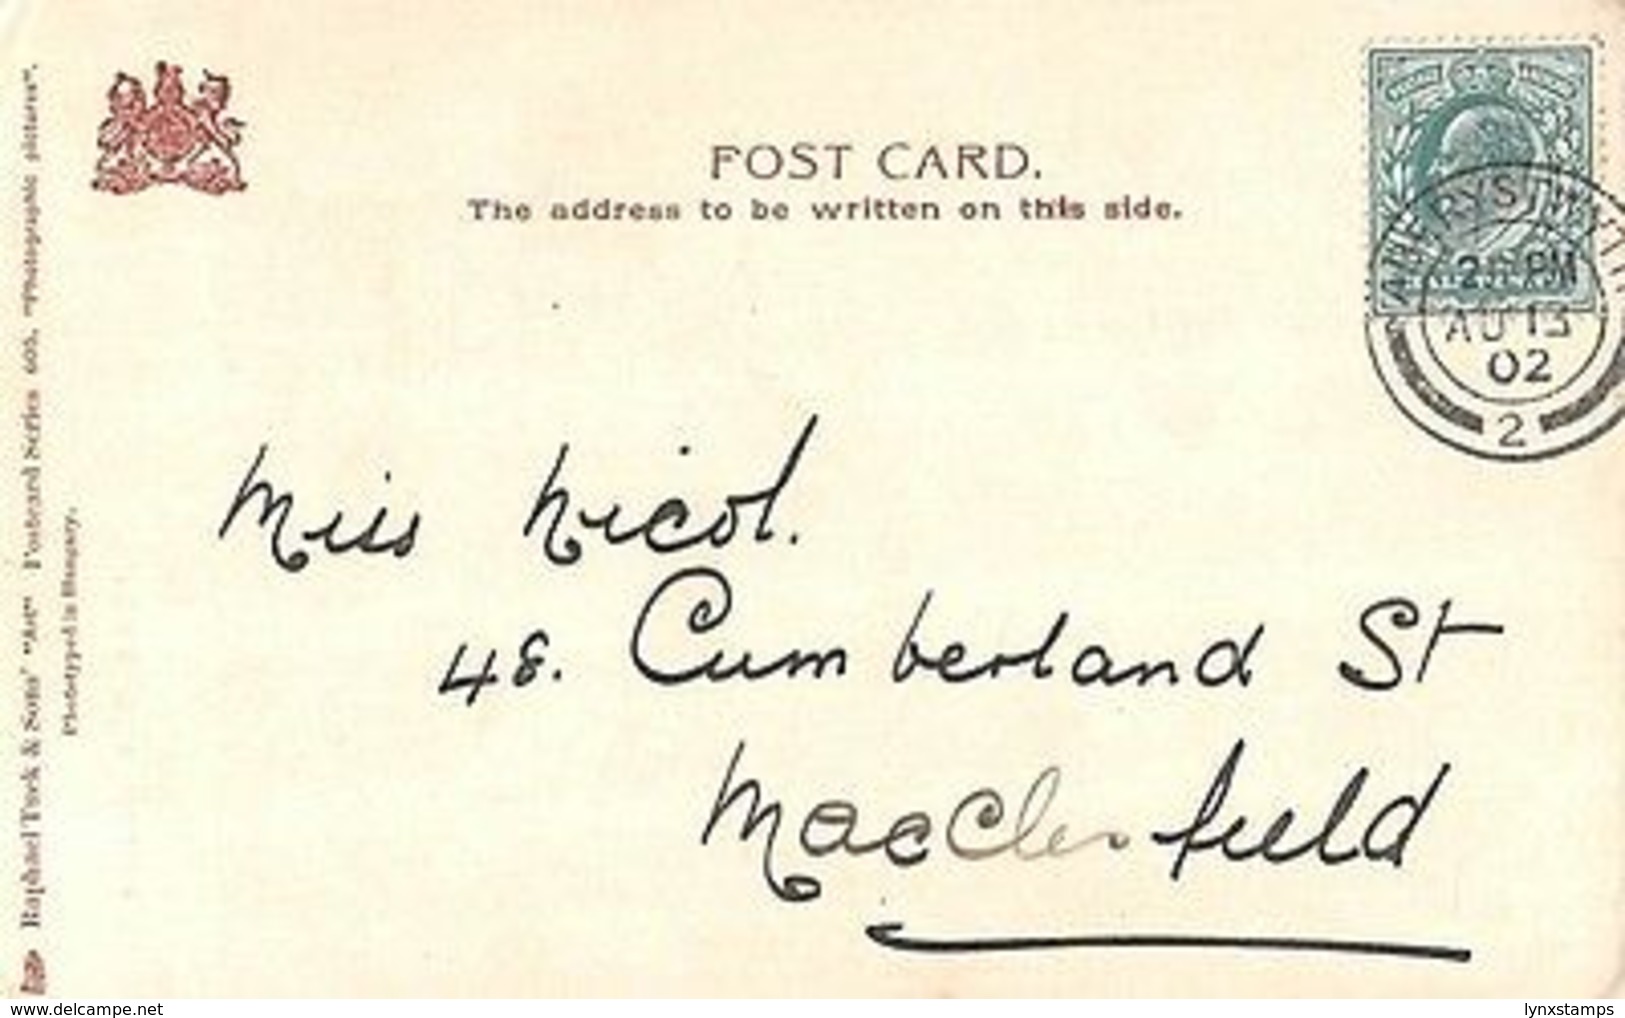 POST CARD.
The address to be written on this side.
2 PM
AU 13
02
2
Miss Nicol.
48. Cumberland St
Macclesfield
Raphael Tuck & Sons' "Art" Postcard Series 605, "Photographic pictures".
Phototyped in Hungary.
www.delcampe.net
lynxstamps